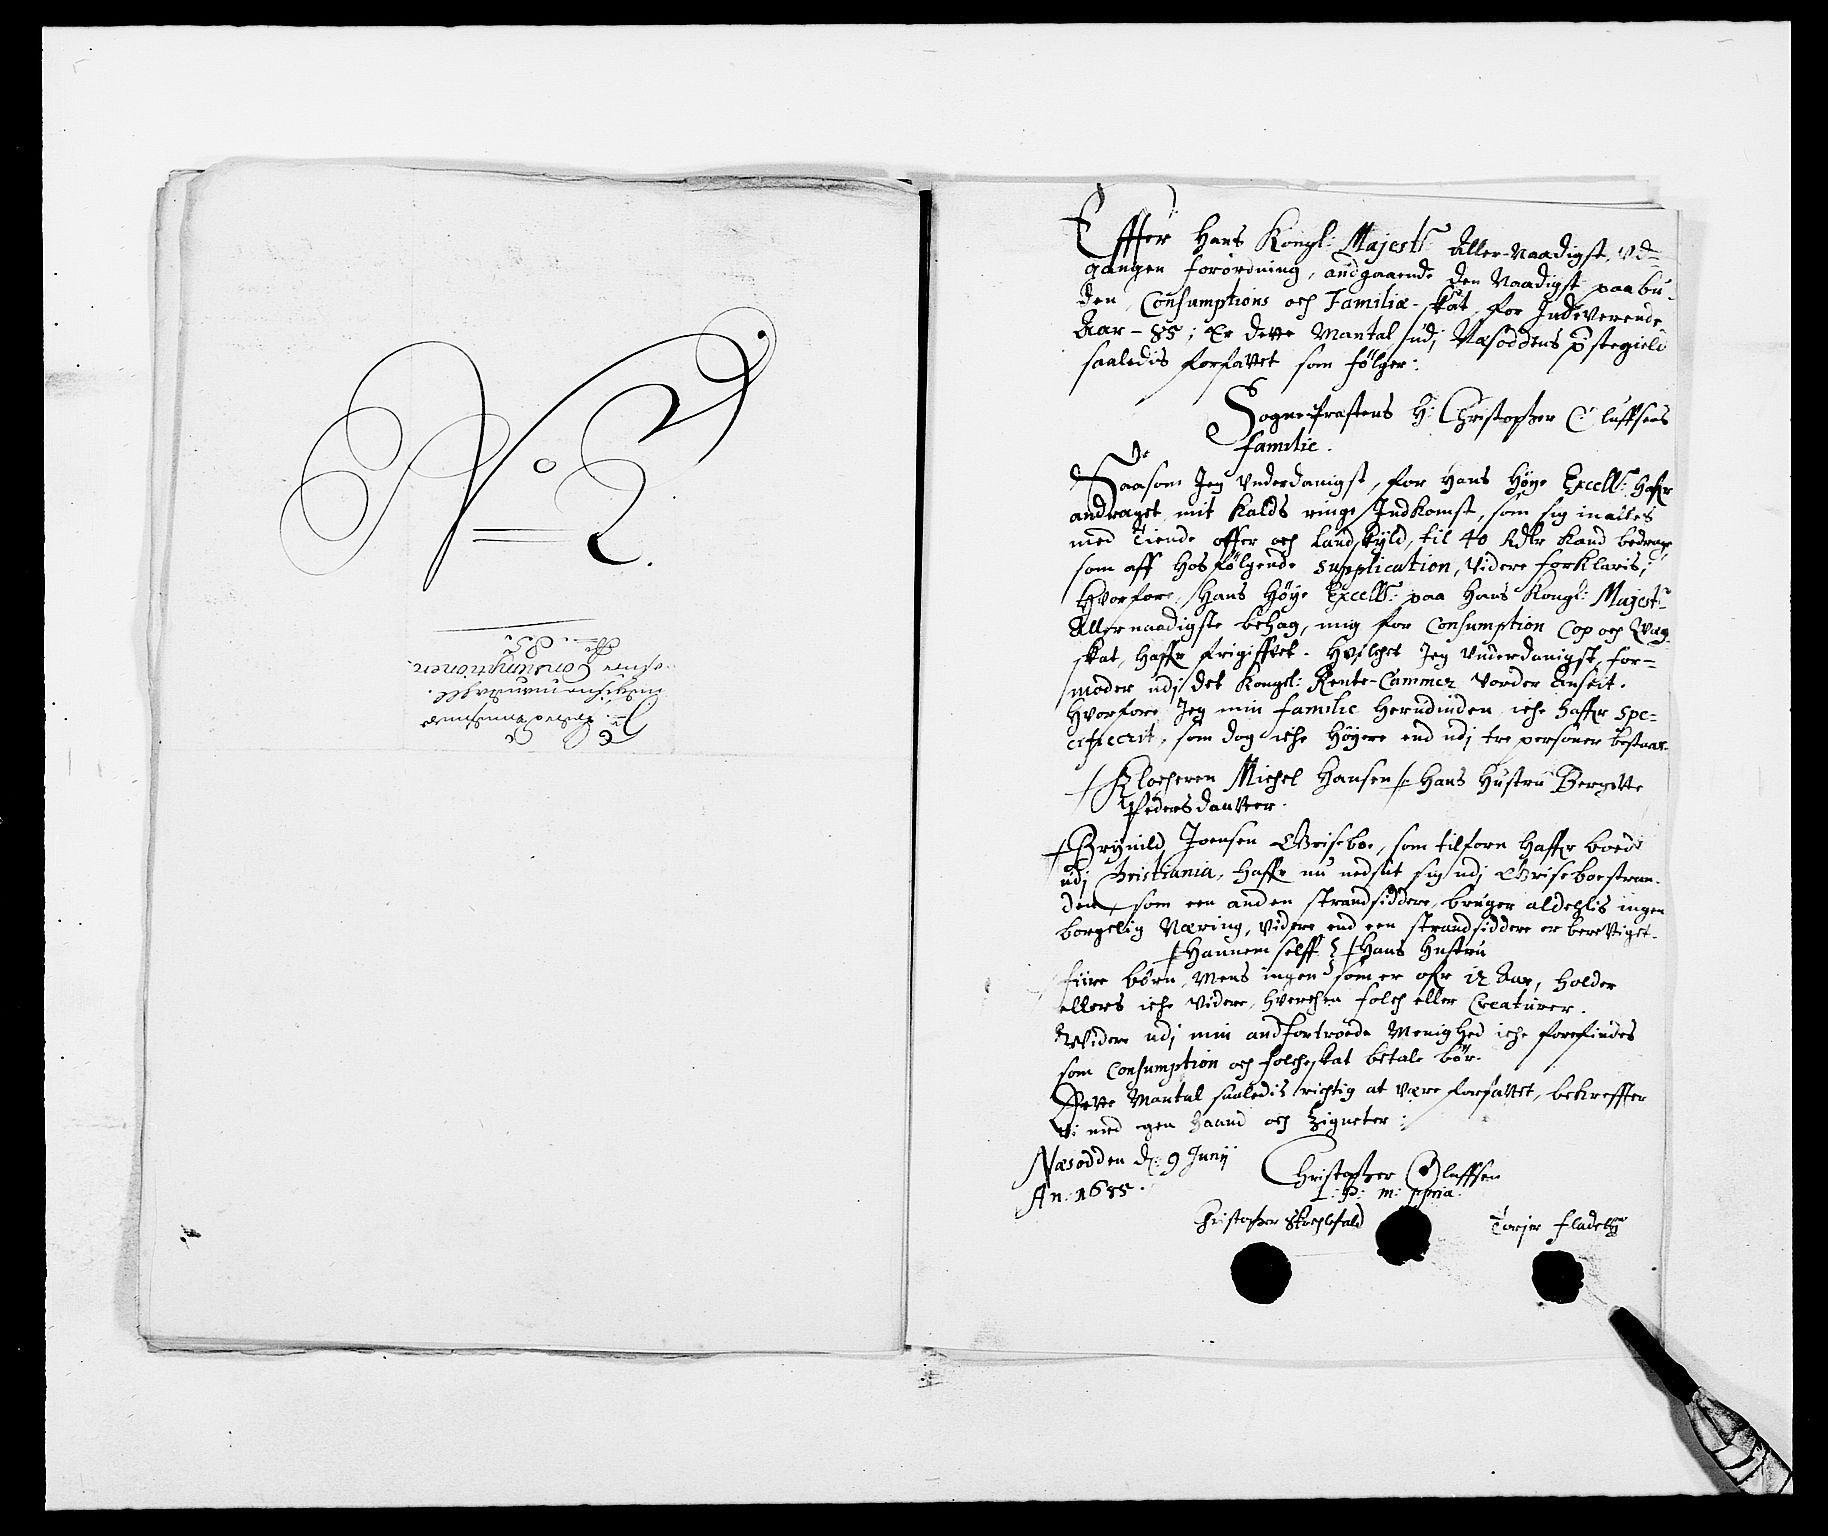 No 2.
Consumptionen
85
Effter Hans Kongl: Majestˢ: Aller-Naadigst, vd-
gangen forordning, andgaaende den Naadigst paabu-
den Consumptions och Familiæ-skat, for Indeverende
Aar - 85; Er dette Mantal udj Næsoddens pstegield
saaledis forfattet som følger:
Sogne-Præstens Hr: Christopher Oluffsens
familie.
Saasom Jeg vnderdanigst, for Hans Høye Excellˢ: Hafr
andraget mit Kalds ringe Indkomst, som sig in alles
med Tiende offer och Landskyld, til 40 Rdlr kand bedrage
som aff Hosfølgende Supplication, videre forklaris;
Hvorfore Hans Høye Excellˢ: paa Hans Kongl: Majestˢ:
Allernaadigste behag, mig for Consumption Cop och Qvæg
skat, Haffr frigiffvet. Hvilchet Jeg vnderdanigst for-
moder udj det Kongl: Rente-Cammer vorder Anseet.
Hvorfore Jeg min familie Herudinden iche haffr spe-
cificerit, som dog iche Høyere end udj tre personer bestaar.
Klocheren Michel Hansen / Hans Hustru Bergitte
Pedersdautter.
Brynild Joensen Griseboe, som tilforn Haffr boed
udj Christiania, Haffr nu nedsat sig udj Griseboestran-
den, som een anden strandsiddere, bruger aldelis ingen
borgelig Næring, videre end een strandsiddere er berettiget.
Hannem selff / Hans Hustru
fiire børn, Mens ingen som er ofr 12 Aar, Holder
ellers iche videre, Hverchen folch eller Creaturer.
Videre udj min andfortroede Menighed iche forefindes
som Consumption och folcheskat betale bør.
Dette Mantal saaledis richtig at være forfattet, bekreffter
vi med egen Haand och Zigneter:
Næsodden d: 9 Junij
An: 1685.
Christopher Oluffsen
m: ppria
Christopher Skochfald
Torjer Fladeby